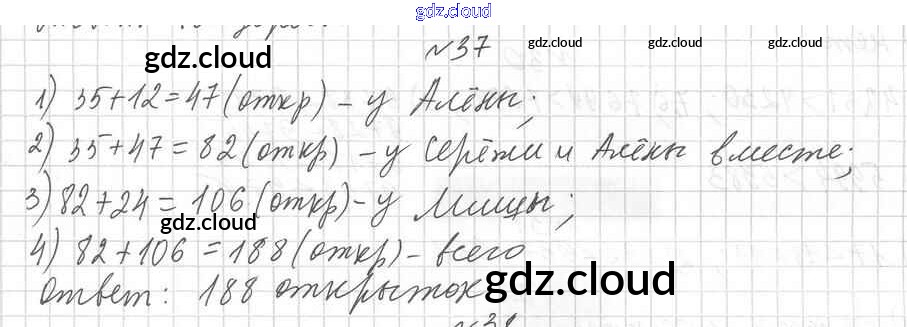 gdz.cloud
№37
gdz.cloud gdz.cloud gdz.cloud
1) 35+12=47(откр) – у Алёны;
2) 35+47=82(откр) – у Серёжи и Алёны вместе;
3) 82+24=106(откр) – у Миши;
gdz.cloud
4) 82+106=188(откр) – всего
gdz.cloud
Ответ: 188 открыток
gdz.cloud